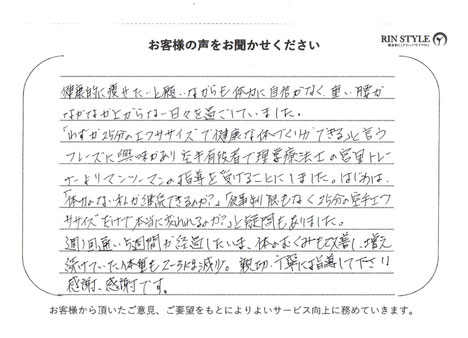 RIN STYLE
お客様の声をお聞かせください
健康的に痩せたいと願いながらも体力に自信がなく、重い腰が
なかなか上がらない日々を過ごしていました。
「わずか25分のエクササイズで健康な体づくりができる」と言う
フレーズに興味があり空手有段者で理学療法士の宮里トレー
ナーよりマンツーマンの指導を受けることにしました。はじめは、
「体力のない私が継続できるか?」「食事制限もなく25分の空手エク
ササイズだけで本当に変われるのか?」と疑問もありました。
週1回通い、5週間が経過したいま、体のむくみも改善し、増え
続けていた体重も2~3kg減少。親切、丁寧に指導して下さり
感謝、感謝です。
お客様から頂いたご意見、ご要望をもとによりよいサービス向上に務めていきます。